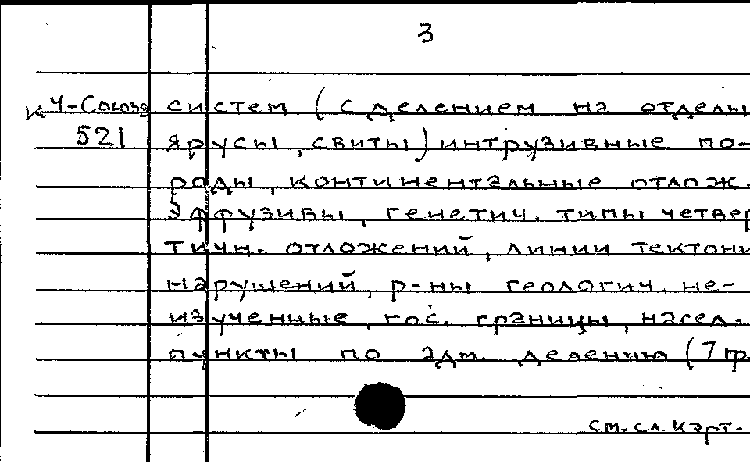 3
К Ч-Союза систем (с делением на отделы
521 ярусы, свиты) интрузивные по-
роды, континентальные отлож.
Эффузивы, генетич. типы четвер
тичн. отложений, линии тектони
нарушений, р-ны геологич. не-
изученные, гос. границы, насел.
пункты по адм. делению (7 гр.
см. сл. карт.